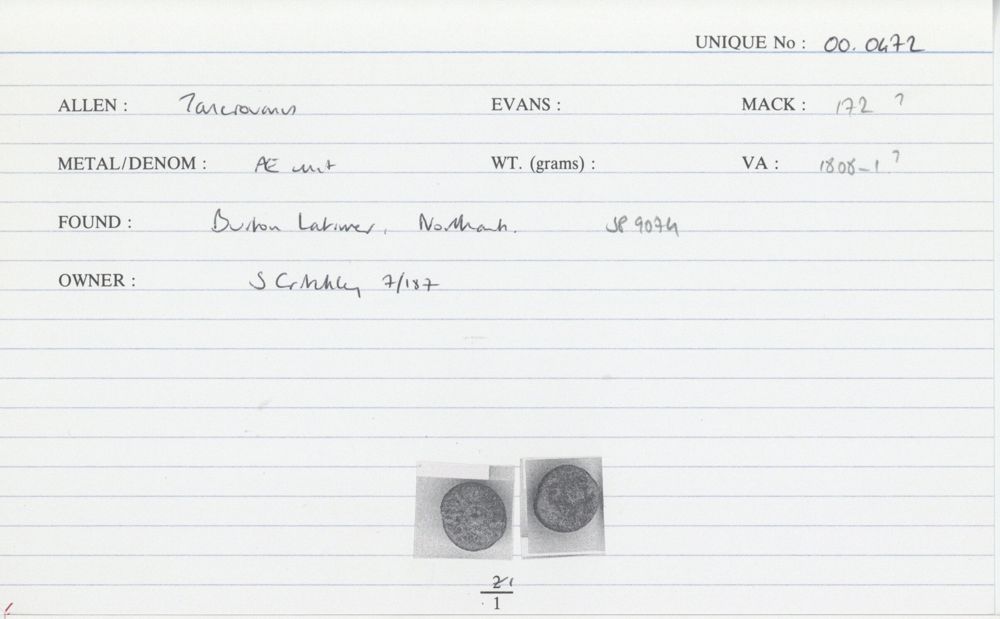 UNIQUE No : 00. 0472
ALLEN : Tasciovanus EVANS : MACK : 172 ?
METAL/DENOM : AE unit WT. (grams) : VA : 1808-1 ?
FOUND : Burton Latimer, Northants. SP 9074
OWNER : S Critchley 7/187
21
1